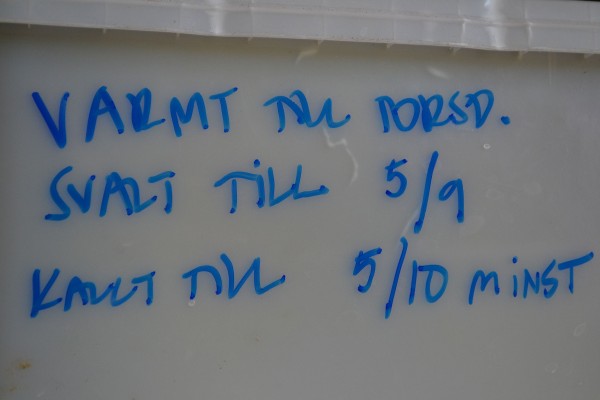 VARMT TILL TORSD.
SVALT TILL 5/9
KALLT TILL 5/10 MINST